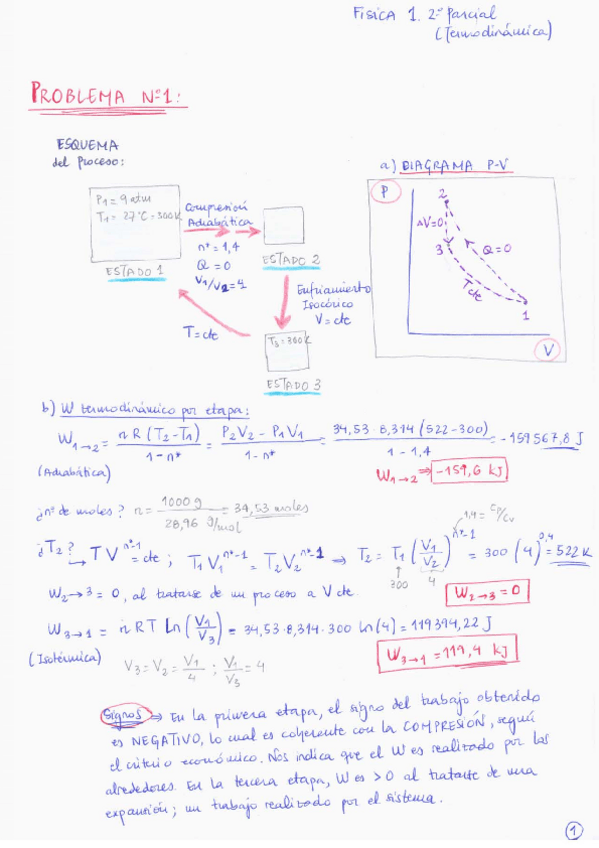 FISICA 1. 2º Parcial
(Termodinámica)
PROBLEMA Nº1:
ESQUEMA
del proceso:
a) DIAGRAMA P-V
P1 = 9 atm
T1 = 27ºC = 300K
ESTADO 1
Compresión
Adiabática
n* = 1,4
Q = 0
V1/V2 = 4
ESTADO 2
Enfriamiento
Isocórico
V = cte
T = cte
T3 = 300K
ESTADO 3
P
2
ΔV=0
3
Q=0
T cte
1
V
b) W termodinámico por etapa:
W1→2 = nR(T2-T1)/1-n* = P2V2-P1V1/1-n* = 34,53·8,314(522-300)/1-1,4 = -159567,8 J
(Adiabática)
W1→2 ⇒ -159,6 kJ
¿nº de moles? n = 1000 g/28,96 g/mol = 34,53 moles
1,4 = Cp/Cv
¿T2? → TV^n*-1 = cte ; T1V1^n*-1 = T2V2^n*-1 → T2 = T1(V1/V2)^n*-1 = 300(4)^0,4 = 522K
300
4
W2→3 = 0, al tratarse de un proceso a V cte.
W2→3 = 0
W3→1 = nRT Ln(V1/V3) = 34,53·8,314·300 ln(4) = 119394,22 J
(Isotérmica)
V3 = V2 = V1/4 ; V1/V3 = 4
W3→1 = 119,4 kJ
Signos ⇒ En la primera etapa, el signo del trabajo obtenido
es NEGATIVO, lo cual es coherente con la COMPRESIÓN, según
el criterio económico. Nos indica que el W es realizado por los
alrededores. En la tercera etapa, W es >0 al tratarse de una
expansión; un trabajo realizado por el sistema.
1